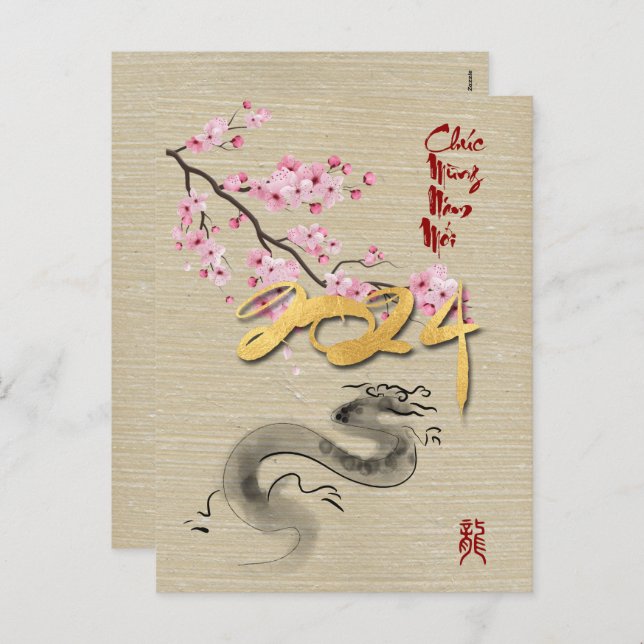 Zazzle
Chúc
Mừng
Năm
Mới
2024
龍